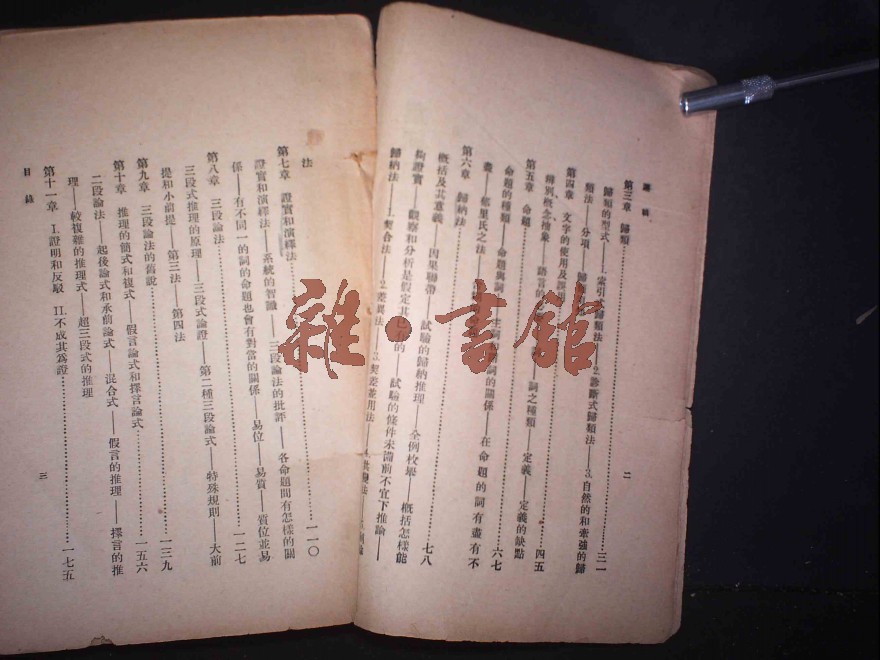 邏輯
二
第三章 歸類……三一
歸類的型式——1.索引式歸類法——2.診斷式歸類法——3.自然的和牽強的歸
類法——分項——歸
第四章 文字的使用及誤……四五
辨別概念 抽象——語言的 詞之種類——定義——定義的缺點
第五章 命題……六七
命題的種類——命題與詞 主詞 詞的關係——在命題的詞有盡有不
盡——郁里氏之法
第六章 歸納法……七八
概括及其意義——因果聯帶——試驗的歸納推理——全例枚舉——概括怎樣能
夠證實——觀察和分析是假定其已 的——試驗的條件未備前不宜下推論——
歸納法——1.契合法——2.差異法——3.契差兼用法——4.共變法
法……一一〇
第七章 證實和演繹法
證實和演繹法——系統的智識——三段論法的批評——各命題間有怎樣的關
係——有不同一的詞的命題也會有對當的關係——易位——易質——質位並易
第八章 三段論法……一二七
三段式推理的原理——三段式論證——第二種三段論式——特殊規則——大前
提和小前提——第三法——第四法
第九章 三段論法的舊說……一三九
第十章 推理的簡式和複式——假言論式和擇言論式……一五六
二段論法——起後論式和承前論式——混合式——假言的推理——擇言的推
理——較複雜的推理式——超三段式的推理
第十一章 I.證明和反駁 II.不成其爲證……一七五
目錄
三
雜·書館